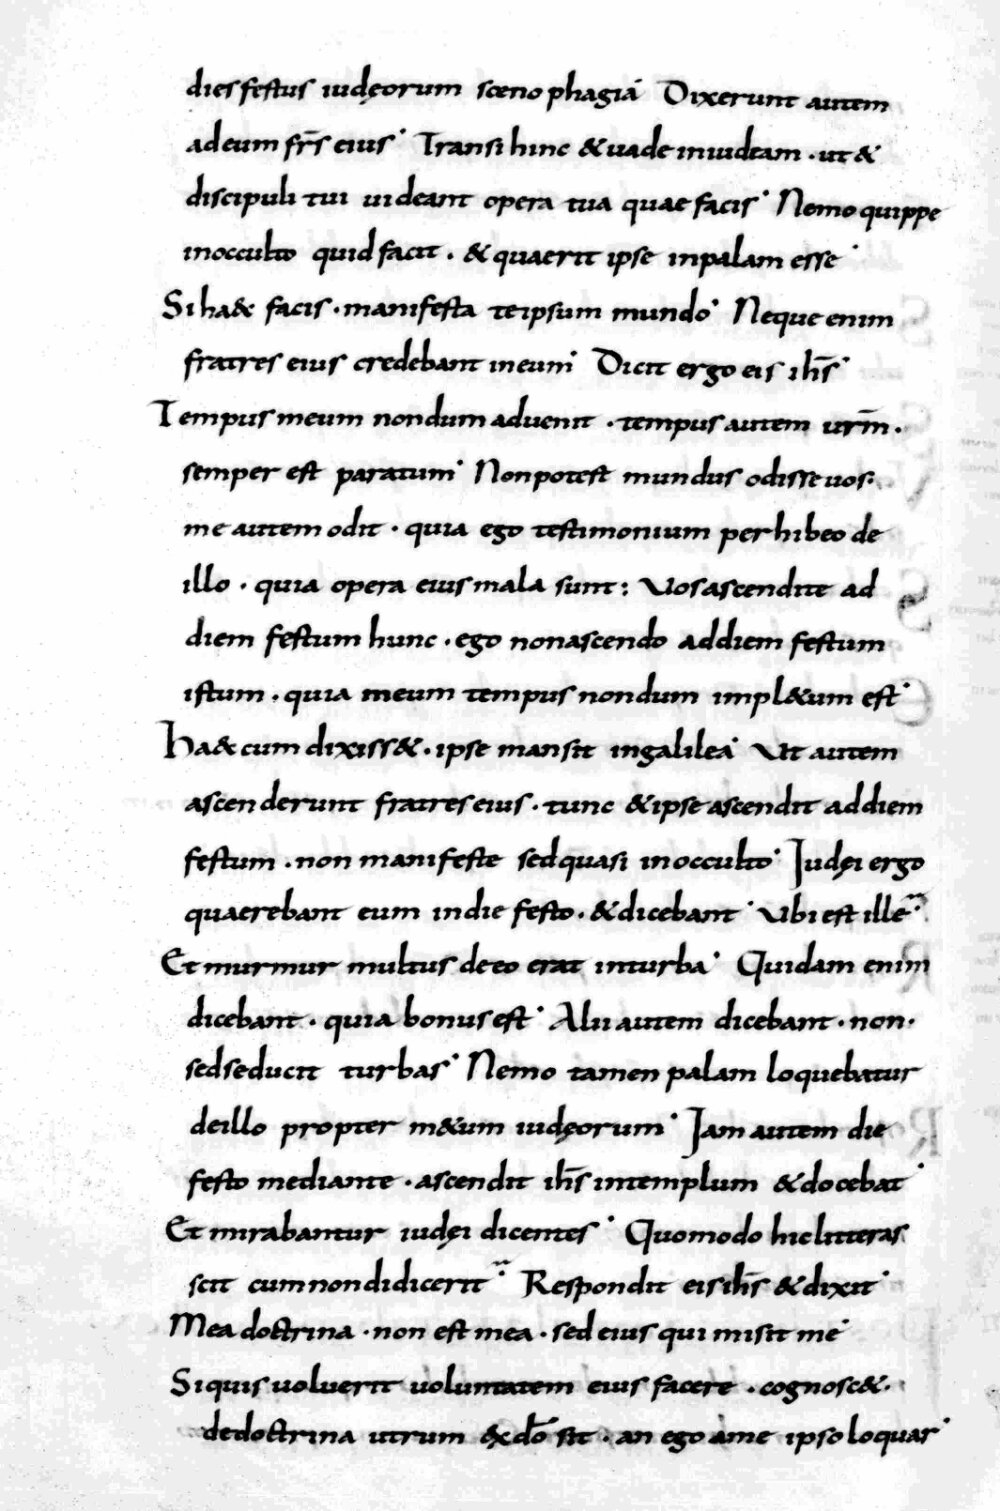 dies festus iudęorum scenophagia˙ Dixerunt autem
ad eum fr̄s eius˙ Transi hinc & uade in iudeam · ut &
discipuli tui uideant opera tua quae facis˙ Nemo quippe
in occulto quid facit · & quaerit ipse in palam esse˙
Si ha&c facis · manifesta te ipsum mundo˙ Neque enim
fratres eius credebant in eum˙ Dicit ergo eis ih̄s˙
Tempus meum nondum aduenit · tempus autem ur̄m ·
semper est paratum˙ Non potest mundus odisse uos ·
me autem odit · quia ego testimonium perhibeo de
illo · quia opera eius mala sunt : Uos ascendite ad
diem festum hunc · ego non ascendo ad diem festum
istum · quia meum tempus nondum impl&um est˙
ha&c cum dixiss& · ipse mansit in galilea˙ Ut autem
ascenderunt fratres eius · tunc & ipse ascendit ad diem
festum · non manifeste sed quasi in occulto˙ Iudęi ergo
quaerebant eum in die festo · & dicebant˙ Ubi est ille
Et murmur multus de eo erat in turba˙ Quidam enim
dicebant · quia bonus est˙ Alii autem dicebant · non ·
sed seducit turbas˙ Nemo tamen palam loquebatur
de illo propter m&um iudęorum˙ Iam autem die
festo mediante · ascendit ih̄s in templum & docebat˙
Et mirabantur iudęi dicentes˙ Quomodo hic litteras
scit cum non didicerit Respondit eis ih̄s & dixit˙
Mea doctrina · non est mea · sed eius qui misit me˙
Si quis uoluerit uoluntatem eius facere · cognosc& ·
de doctrina utrum ex dō sit · an ego a me ipso loquar˙